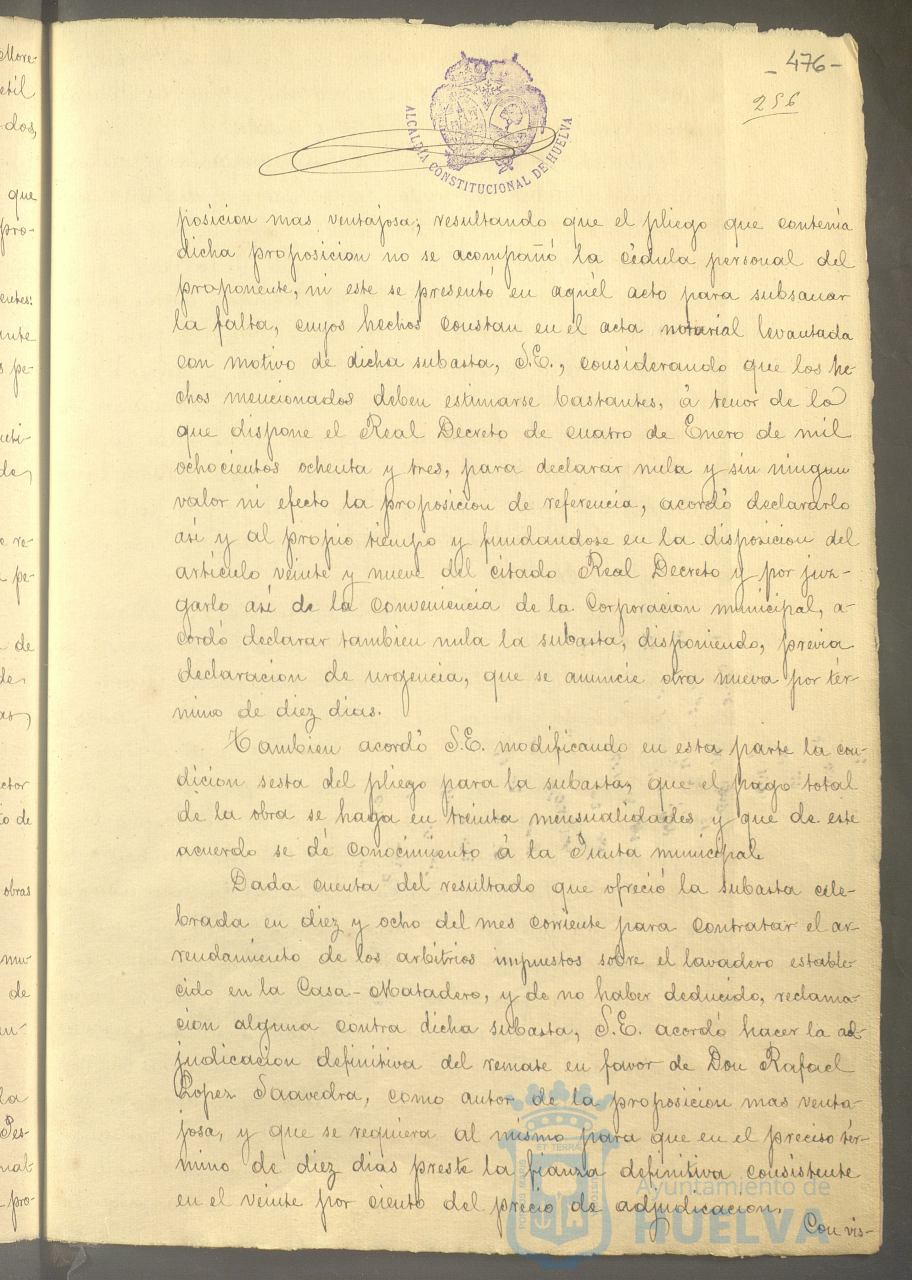 -476-
256
ALCALDIA CONSTITUCIONAL DE HUELVA
posicion mas ventajosa; resultando que el pliego que contenia
dicha proposicion no se acompañó la cédula personal del
proponente, ni este se presentó en aquél acto para subsanar
la falta, cuyos hechos constan en el acta notarial levantada
con motivo de dicha subasta, S.E., considerando que los he-
chos mencionados deben estimarse bastantes, á tenor de lo
que dispone el Real Decreto de cuatro de Enero de mil
ochocientos ochenta y tres, para declarar nula y sin ningun
valor ni efecto la proposicion de referencia, acordó declararlo
así y al propio tiempo y fundandose en la disposicion del
artículo veinte y nueve del citado Real Decreto y por juz-
garlo así de la conveniencia de la Corporacion municipal, a-
cordó declarar tambien nula la subasta, disponiendo, previa
declaracion de urgencia, que se anuncie otra nueva por tér-
mino de diez dias.
Tambien acordó S.E. modificando en esta parte la con-
dicion sesta del pliego para la subasta, que el pago total
de la obra se haga en treinta mensualidades y que de este
acuerdo se dé conocimiento á la Junta municipal.
Dada cuenta del resultado que ofreció la subasta cele-
brada en diez y ocho del mes corriente para contratar el ar-
rendamiento de los arbitrios impuestos sobre el lavadero estable-
cido en la Casa-Matadero, y de no haber deducido, reclama-
cion alguna contra dicha subasta, S.E. acordó hacer la ad-
judicacion definitiva del remate en favor de Don Rafael
Lopez Saavedra, como autor de la proposicion mas venta-
josa, y que se requiera al mismo para que en el preciso tér-
mino de diez dias preste la fianza definitiva consistente
en el veinte por ciento del precio de adjudicacion.
Con vis-
Ayuntamiento de
HUELVA